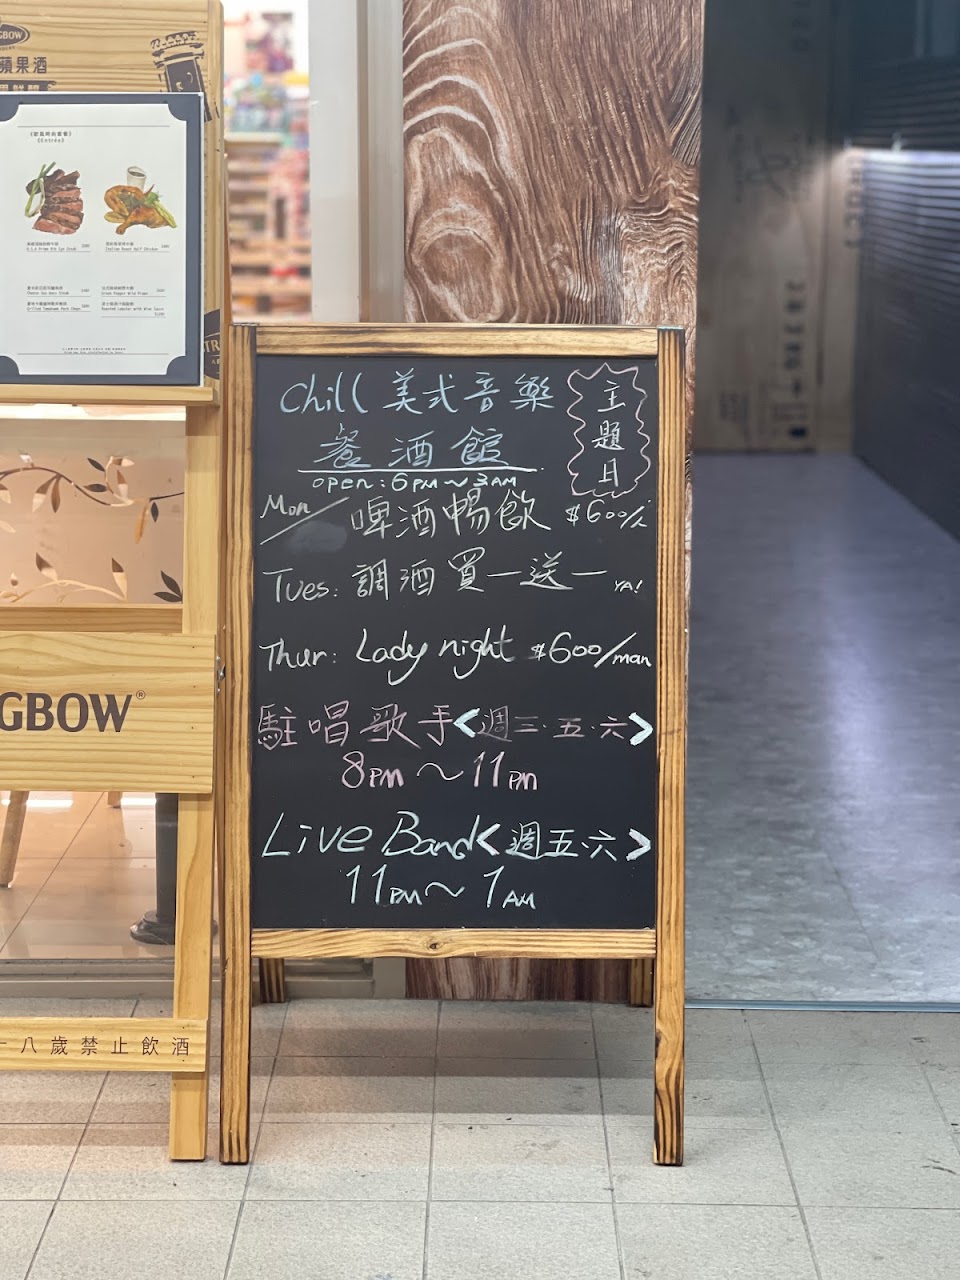 GBOW
蘋果酒
《歐風時尚套餐》
《Entrée》
U.S.A Prime Rib Eye Steak
Italian Roast Half Chicken
Green Pepper Wild Prawn
Grilled Tomahawk Pork Chops
Roasted lobster with Wine Sauce
GBOW®
十八歲禁止飲酒
Chill 美式音樂
餐酒館
主題日
open:6PM～3AM
Mon/啤酒暢飲 $600/人
Tues:調酒買一送一 YA!
Thur: Lady night $600/man
駐唱歌手<週三·五·六>
8PM～11PM
Live Band<週五·六>
11PM～1AM